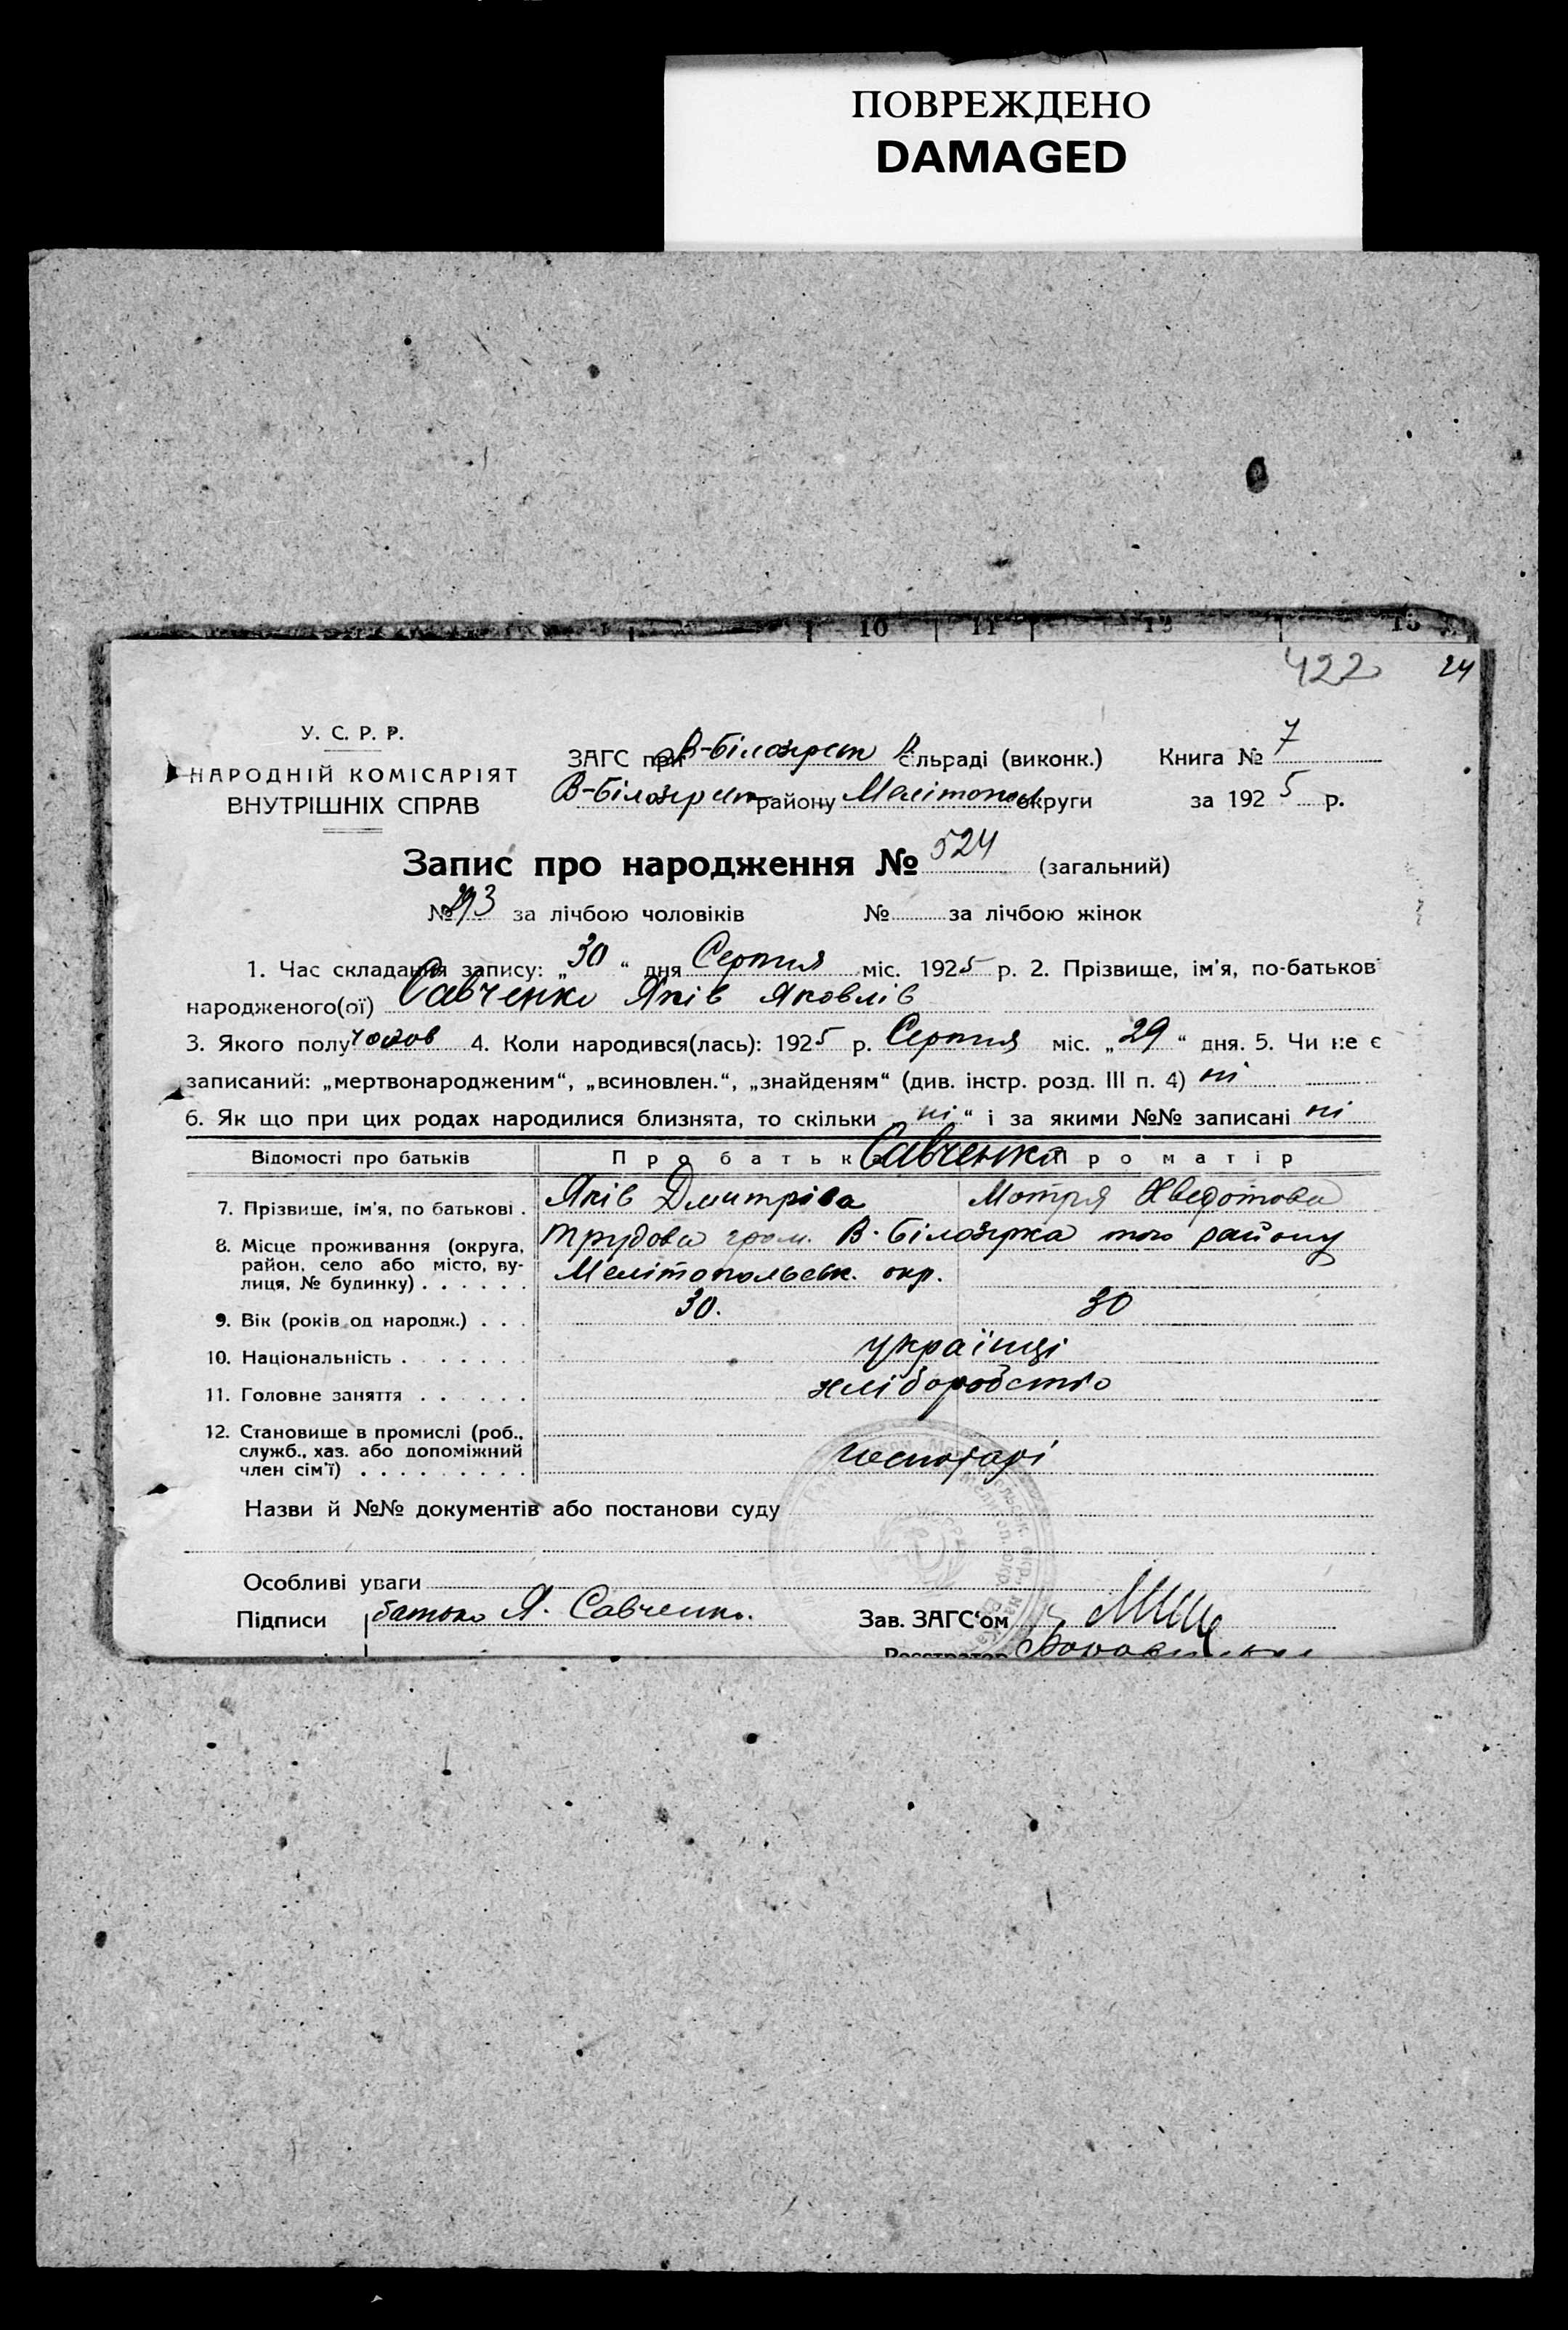 ПОВРЕЖДЕНО
DAMAGED
10 11 12 13
422 24
У. С. Р. Р.
НАРОДНІЙ КОМІСАРІЯТ
ВНУТРІШНІХ СПРАВ
ЗАГС при В-Білозерск сільраді (виконк.) Книга № 7
В-Білозерск району Мелітопол округи за 1925 р.
Запис про народження № 524 (загальний)
№ 293 за лічбою чоловіків № за лічбою жінок
1. Час складання запису: „30“ дня Серпня міс. 1925 р. 2. Прізвище, ім'я, по-батьков
народженого(ої) Савченко Яків Яковлів
3. Якого полу чолов 4. Коли народився(лась): 1925 р. Серпня міс. „29“ дня. 5. Чи не є
записаний: „мертвонародженим“, „всиновлен.“, „знайденям“ (див. інстр. розд. III п. 4) ні
6. Як що при цих родах народилися близнята, то скільки „ні“ і за якими №№ записані ні
Відомості про батьків Про батька Савченко Про матір
7. Прізвище, ім'я, по батькові . Яків Дмитріва Мотря Хведотова
8. Місце проживання (округа, район, село або місто, вулиця, № будинку) . . . . . Трудова гром. В. Білозерка того району
Мелітопольськ. окр.
9. Вік (років од народж.) . . . 30. 30
10. Національність . . . . . . . українці
11. Головне заняття . . . . . . хліборобство
12. Становище в промислі (роб.,
служб., хаз. або допоміжний
член сім'ї) . . . . . . . . . господарі
Назви й №№ документів або постанови суду
Особливі уваги
Підписи батько Я. Савченко. Зав. ЗАГС'ом
Реєстратор